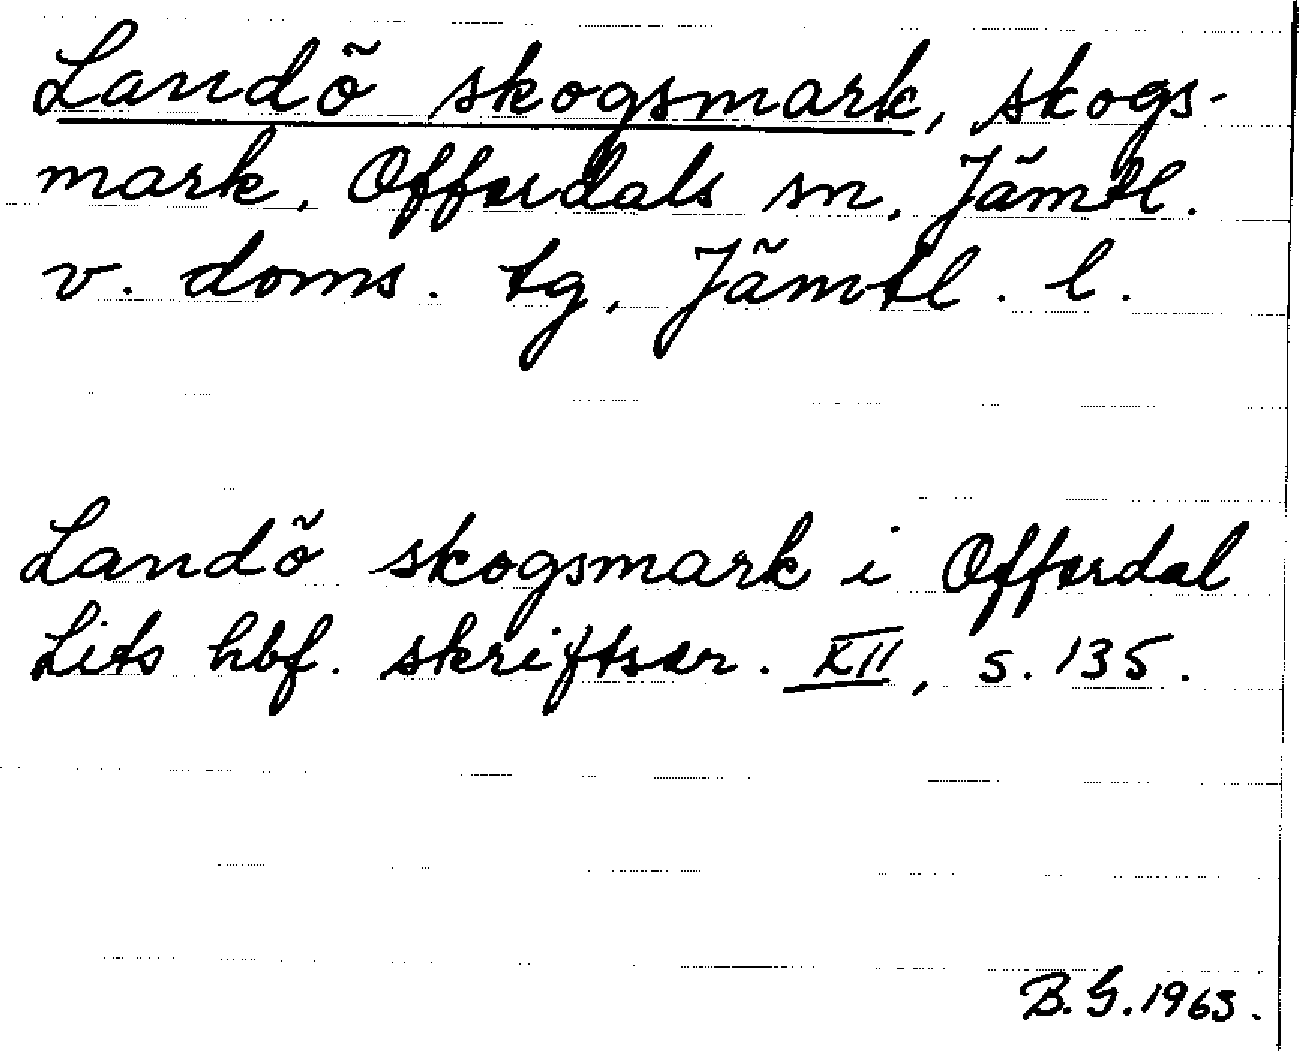 Landö skogsmark, skogs-
mark, Offerdals sn, Jämtl.
v. doms. tg, Jämtl. l.
Landö skogsmark i Offerdal
Lits hbf. skriftser. XII, s. 135.
B.G. 1965.